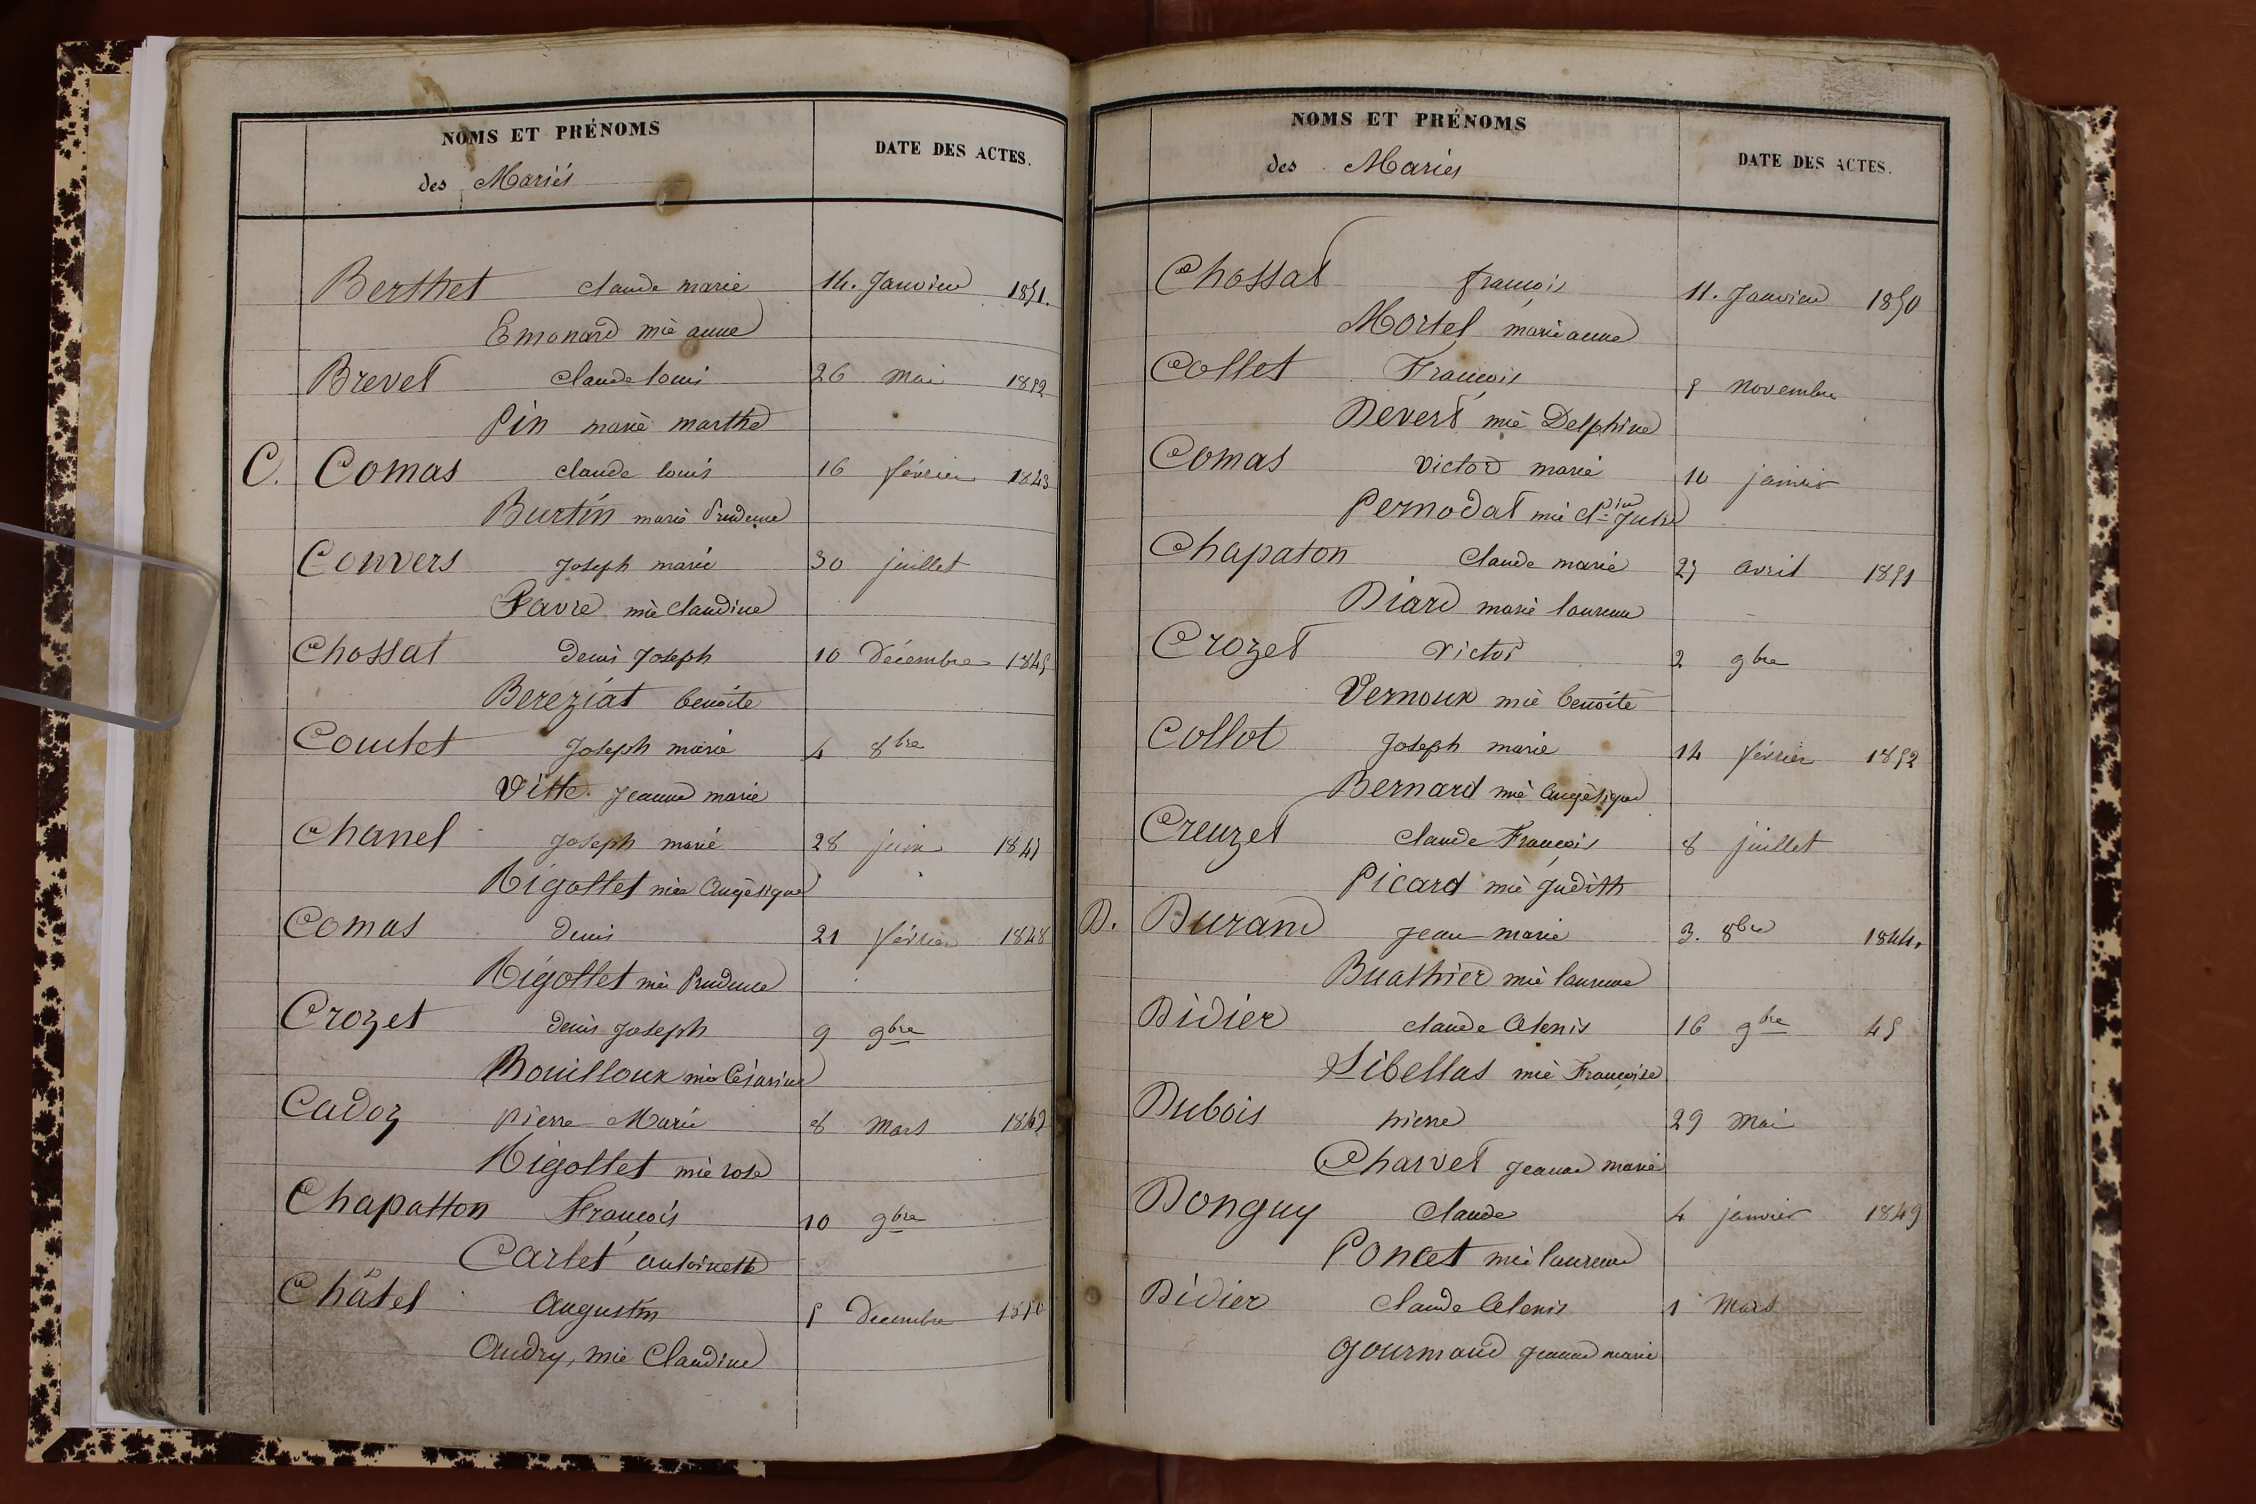 NOMS ET PRÉNOMS
des Mariés
DATE DES ACTES.
Berthet claude marie 14. Janvier 1851.
Emonard mie anne
Brevet claude louis 26 mai 1852
Pin marie marthe
C. Comas claude louis 16 février 1843
Burtin marie Prudence
Convers Joseph marie 30 juillet
Favre mie claudine
Chossat denis Joseph 10 Décembre 1845
Bereziat benoite
Coutet Joseph marie 4 8bre
Vitte Jeanne marie
Chanel Joseph marie 28 juin 1847
Rigollet mie Angélique
Comas denis 21 février 1848
Rigollet mie Prudence
Crozet denis Joseph 9 9bre
Bouilloux mie Césarine
Cadoz pierre Marie 8 Mars 1849
Rigollet mie rose
Chapatton François 10 9bre
Carlet antoinette
Châtel Augustin 5 Decembre 1850
Audry, mie Claudine
NOMS ET PRÉNOMS
des Mariés
DATE DES ACTES.
Chossat françois 11. Janvier 1850
Mortel marie anne
Collet François 5 novembre
Devert mie Delphine
Comas victor marie 10 janvier
Pernodat mie
Chapaton Claude marie 25 avril 1851
Diard marie laurence
Crozet victor 2 9bre
Vernoux mie benoite
Collot Joseph marie 14 février 1852
Bernard mie Angélique
Creuzet claude François 8 juillet
Picard mie Judith
D. Durand jean marie 3. 8bre 1844.
Buathier mie laurence
Didier claude Alexis 16 9bre 45
Sibellas mie Françoise
Dubois pierre 29 mai
Charvet jeanne marie
Donguy Claude 4 janvier 1849
Poncet mie laurence
Didier Claude Alexis 1 Mars
Gourmand jeanne marie